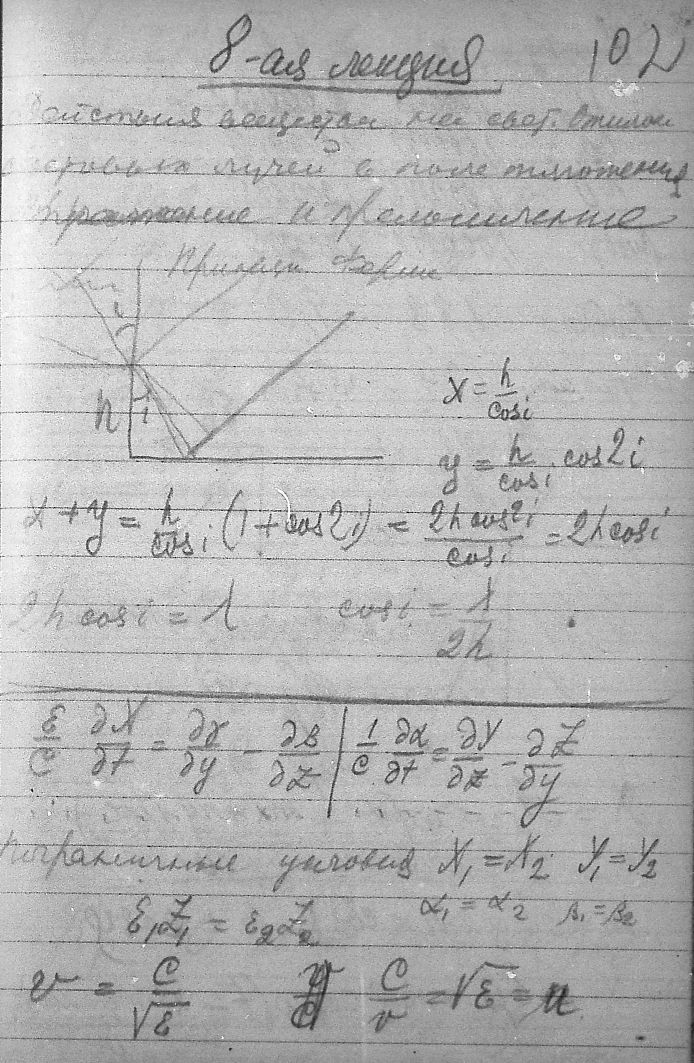 8-ая лекция 102
действия вещества на свет.
лучей в поле тяготения
отражение и преломление
Принцип Ферми
i
h i
x = h/cos i
y = h/cos i · cos 2i
x + y = h/cos i (1 + cos 2i) = 2h cos²i/cos i = 2h cos i
2h cos i = λ cos i = λ/2h
ε/c ∂X/∂t = ∂γ/∂y − ∂β/∂z | 1/c ∂α/∂t = ∂Y/∂z − ∂Z/∂y
пограничные условия X₁ = X₂ Y₁ = Y₂
ε₁Z₁ = ε₂Z₂ α₁ = α₂ β₁ = β₂
v = c/√ε c/v = √ε = n